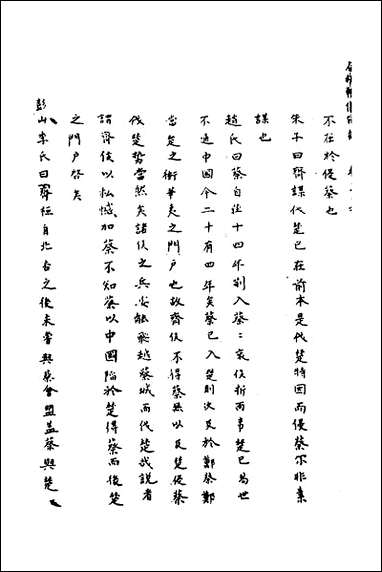 不在於侵蔡也
朱子曰齊謀伐楚已在前本是伐楚特因而侵蔡尔非素
謀也
趙氏曰蔡自莊十四年荆入蔡二哀侯折而事楚已易世
不通中國今二十有四年矣蔡已入楚則次及於鄭蔡鄭
當楚之衝華夷之門户也故齊侯不得蔡無以及楚侵蔡
伐楚勢當然矣諸侯之兵安能飛越蔡城而伐楚哉説者
謂齊侯以私憾加蔡不知蔡以中國陷於楚得蔡而後楚
之門户啓矣
彭山季氏曰齊桓自北杏之後未嘗與蔡會盟盖蔡與楚